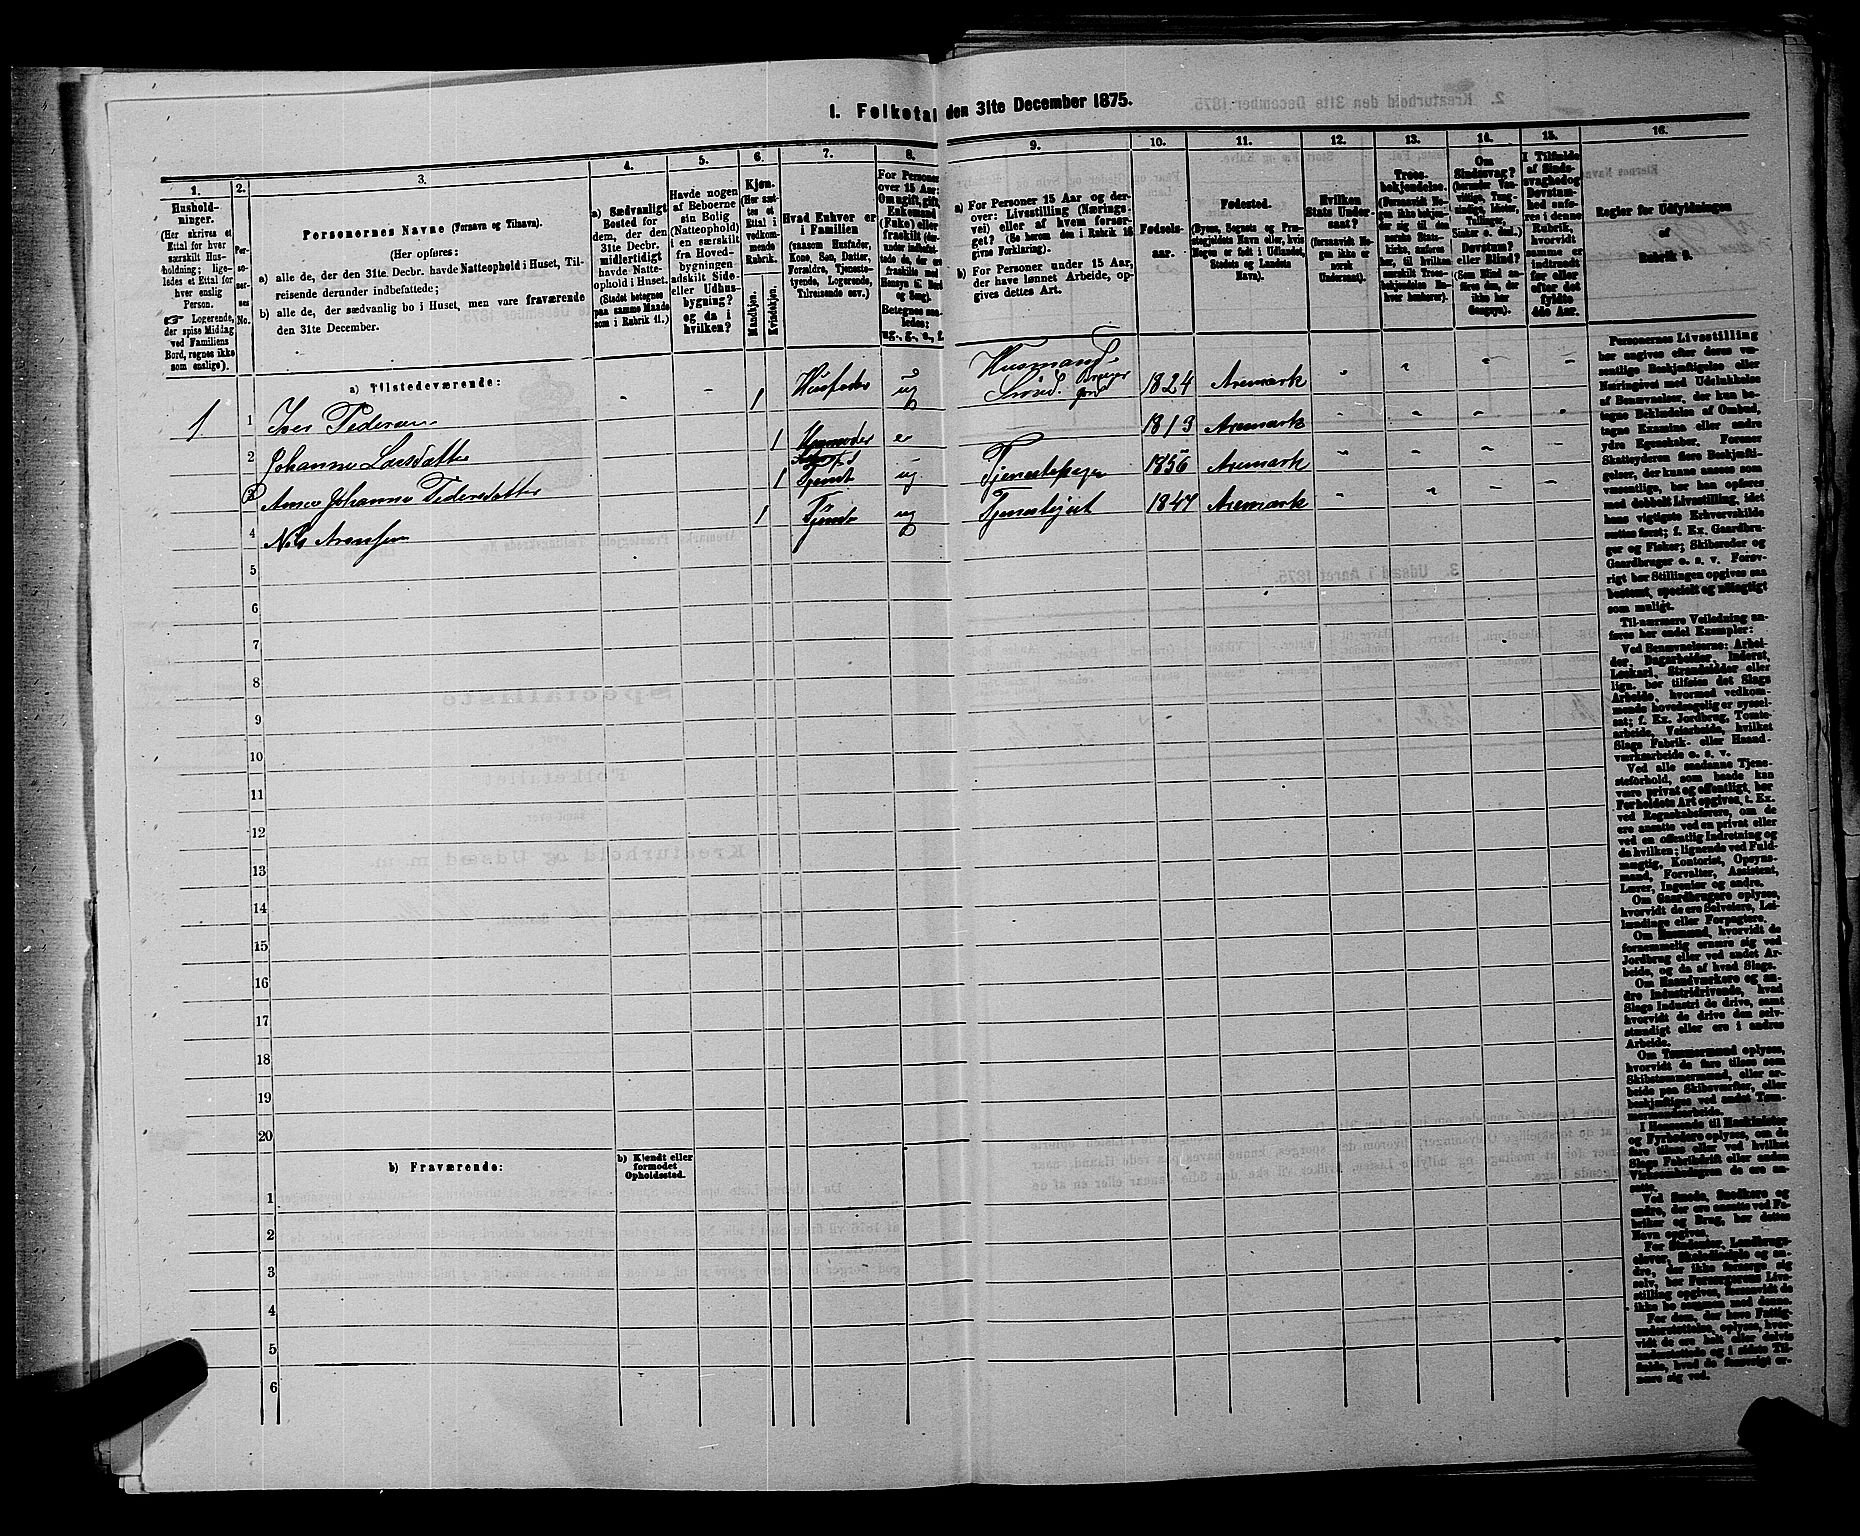 1. Folketal den 31te December 1875.
1.
Husholdninger.
(Her skrives et
Ettal for hver
særskilt Husholdning;
ligeledes et Ettal for
hver enslig
Person.
☞ Logerende,
der spise Middag
ved Familiens
Bord, regnes ikke
som enslige).
2.
Personernes
No.
3.
Personernes Navne (Fornavn og Tilnavn).
(Her opføres:
a) alle de, der den 31te Decbr. havde Natteophold i Huset, Tilreisende derunder indbefattede;
b) alle de, der sædvanlig bo i Huset, men vare fraværende
den 31te December.
4.
a) Sædvanligt
Bosted for
dem, der den
31te Decbr.
midlertidigt
havde Natteophold i Huset.
(Stedet betegnes
paa samme Maade
som i Rubrik 11.)
5.
Havde nogen
af Beboerne
sin Bolig
(Natteophold)
i en særskilt
fra Hovedbygningen
adskilt Side-
eller Udhusbygning?
og da i
hvilken?
6.
Kjøn.
(Her sættes et
Ettal i
vedkommende
Rubrik.
Mandkjøn.
Kvindekjøn.
7.
Hvad Enhver er
i Familien
(saasom Husfader,
Kone, Søn, Datter,
Forældre, Tjenestetyende, Logerende,
Tilreisende osv.)
8.
For Personer
over 15 Aar:
Om ugift, gift,
Enkemand
(Enke) eller
fraskilt
Betegnes saaledes:
ug., g., e., f.
9.
a) For Personer 15 Aar og derover: Livsstilling (Næringsvei) eller af hvem forsørget? (Se herom den i Rubrik 16
givne Forklaring).
b) For Personer under 15 Aar,
der have lønnet Arbeide, opgives dettes Art.
10.
Fødselsaar.
11.
Fødested.
(Byens, Sognets og Præstegjeldets Navn eller, hvis
Nogen er født i Udlandet,
Stedets og Landets
Navn).
12.
Hvilken
Stats Undersaat?
(forsaavidt Nogen ikke er
norsk
Undersaat).
13.
Troesbekjendelse.
(Forsaavidt Nogen ikke bekjender sig til
den norske Statskirke, anføres
her, til hvilken
særskilt Troesbekjendelse Enhver henhører).
14.
Om
Sindssvag?
Døvstum?
eller Blind?
15.
I Tilfælde
af Sindssvaghed og
Døvstumhed anføres i denne
Rubrik,
hvorvidt
samme er
indtraadt
før eller
efter det
fyldte
4de Aar.
16.
Regler for Udfyldningen
af
Rubrik 9.
a) Tilstedeværende:
1 1 Iver Pedersen - - 1 Husfader ug Husmand 1824 Aremark
2 Johanne Larsdatter 1 e 1813 Aremark
3 Anne Johanne Pedersdatter 1 Tjendt ug Tjenestepige 1856 Aremark
4 Nils Arensen 1 Tjendt ug Tjenestegut 1847 Aremark
5
6
7
8
9
10
11
12
13
14
15
16
17
18
19
20
b) Fraværende:
b) Kjendt eller
formodet
Opholdssted.
1
2
3
4
5
6
Personernes Livsstilling
bør angives efter deres væsentlige Beskjæftigelse eller
Næringsvei med Udelukkelse
af Benævnelser, der kun betegne Beklædelse af Ombud,
tagne Examina eller andre
ydre Egenskaber. Forener
Skatteyderen flere Beskjæftigelser, der kunne ansees som
væsentlige, bør han opføres
med dobbelt Livsstilling, idet
hans vigtigste Erhvervskilde
sættes først; f. Ex. Gaardbruger og Fisker; Skibsreder og
Gaardbruger o. s. v. Forøvrigt bør Stillingen opgives saa
bestemt, specielt og nøiagtigt
som muligt.
Til nærmere Veiledning anføres her endel Exempler:
Ved Benævnelserne: Arbeider, Dagarbeider, Inderst,
Løskarl, Strandsidder eller
lign. bør tilføies det Slags
Arbeide, hvormed vedkommende hovedsagelig er sysselsat; f. Ex. Jordbrug, Tomtearbeide, Veiarbeide, hvilket
Slags Fabrik- eller Haandværksarbeide o. s. v.
Ved alle saadanne Tjenesteforhold, som baade kan
være privat og offentligt, bør
Forholdets Art opgives, t. Ex.
ved Regnskabsførere, om de
ere ansatte ved en privat eller
ved en offentlig Indretning og
da hvilken; lignende ved Fuldmægtig, Kontorist, Opsynsmand, Forvalter, Assistent,
Lærer, Ingeniør og andre.
Om Gaardbrugere oplyses,
hvorvidt de ere Selveiere, Leilændinge eller Forpagtere.
Om Husmænd, hvorvidt de
fornemmelig ernære sig ved
Jordbrug eller ved andet Arbeide, og da af hvad Slags.
Om Haandværkere og andre Industridrivende, hvad
Slags Industri de drive, samt
hvorvidt de drive den selvstændigt eller ere i andres
Arbeide.
Om Tømmermænd oplyses,
hvorvidt de fare tilsøs som
Skibstømmermænd, eller arbeide paa Skibsværfter, eller
beskjæftiges ved andet Tømmermandsarbeide.
I Henseende til Maskinister
og Fyrbødere oplyses, om de
fare tilsøs eller ved hvilket
Slags Fabrikdrift eller anden
Virksomhed de ere ansatte.
Ved Smede, Snedkere og
andre, der ere ansatte ved Fabriker og Brug, bør dettes
Navn opgives.
For Studenter, Landbrugselever, Skoledisciple og andre, der ikke forsørge sig
selv, bør Forsørgerens Livsstilling opgives, forsaavidt de
ikke bo sammen med denne.
For dem, der have Fattigunderstøttelse, oplyses, hvorvidt de ere helt eller delvis
understøttede og i sidste Tilfælde, hvad de forøvrigt ernære sig ved.